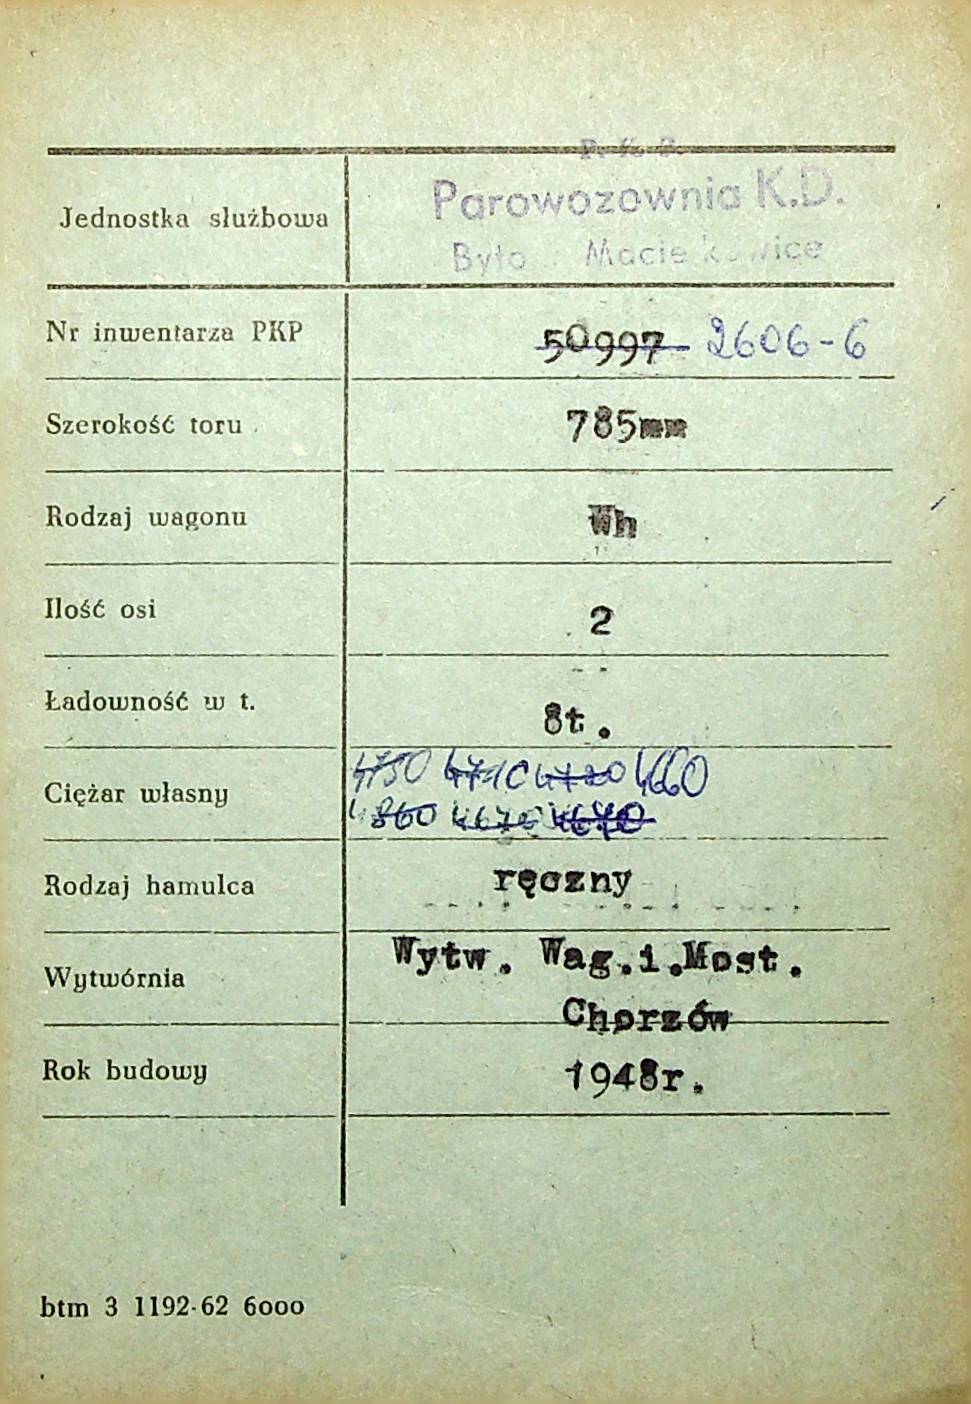 P. K. P.
Jednostka służbowa Parowozownia K.D.
Byto Macie kowice
Nr inwentarza PKP 50997 2606-6
Szerokość toru 785mm
Rodzaj wagonu Wh
Ilość osi 2
Ładowność w t. 8t.
4750 4710 4720 4660
Ciężar własny
4860 4670
Rodzaj hamulca ręczny
Wytwórnia Wytw. Wag.i.Most.
Chorzów
Rok budowy 1948r.
btm 3 1192-62 6000